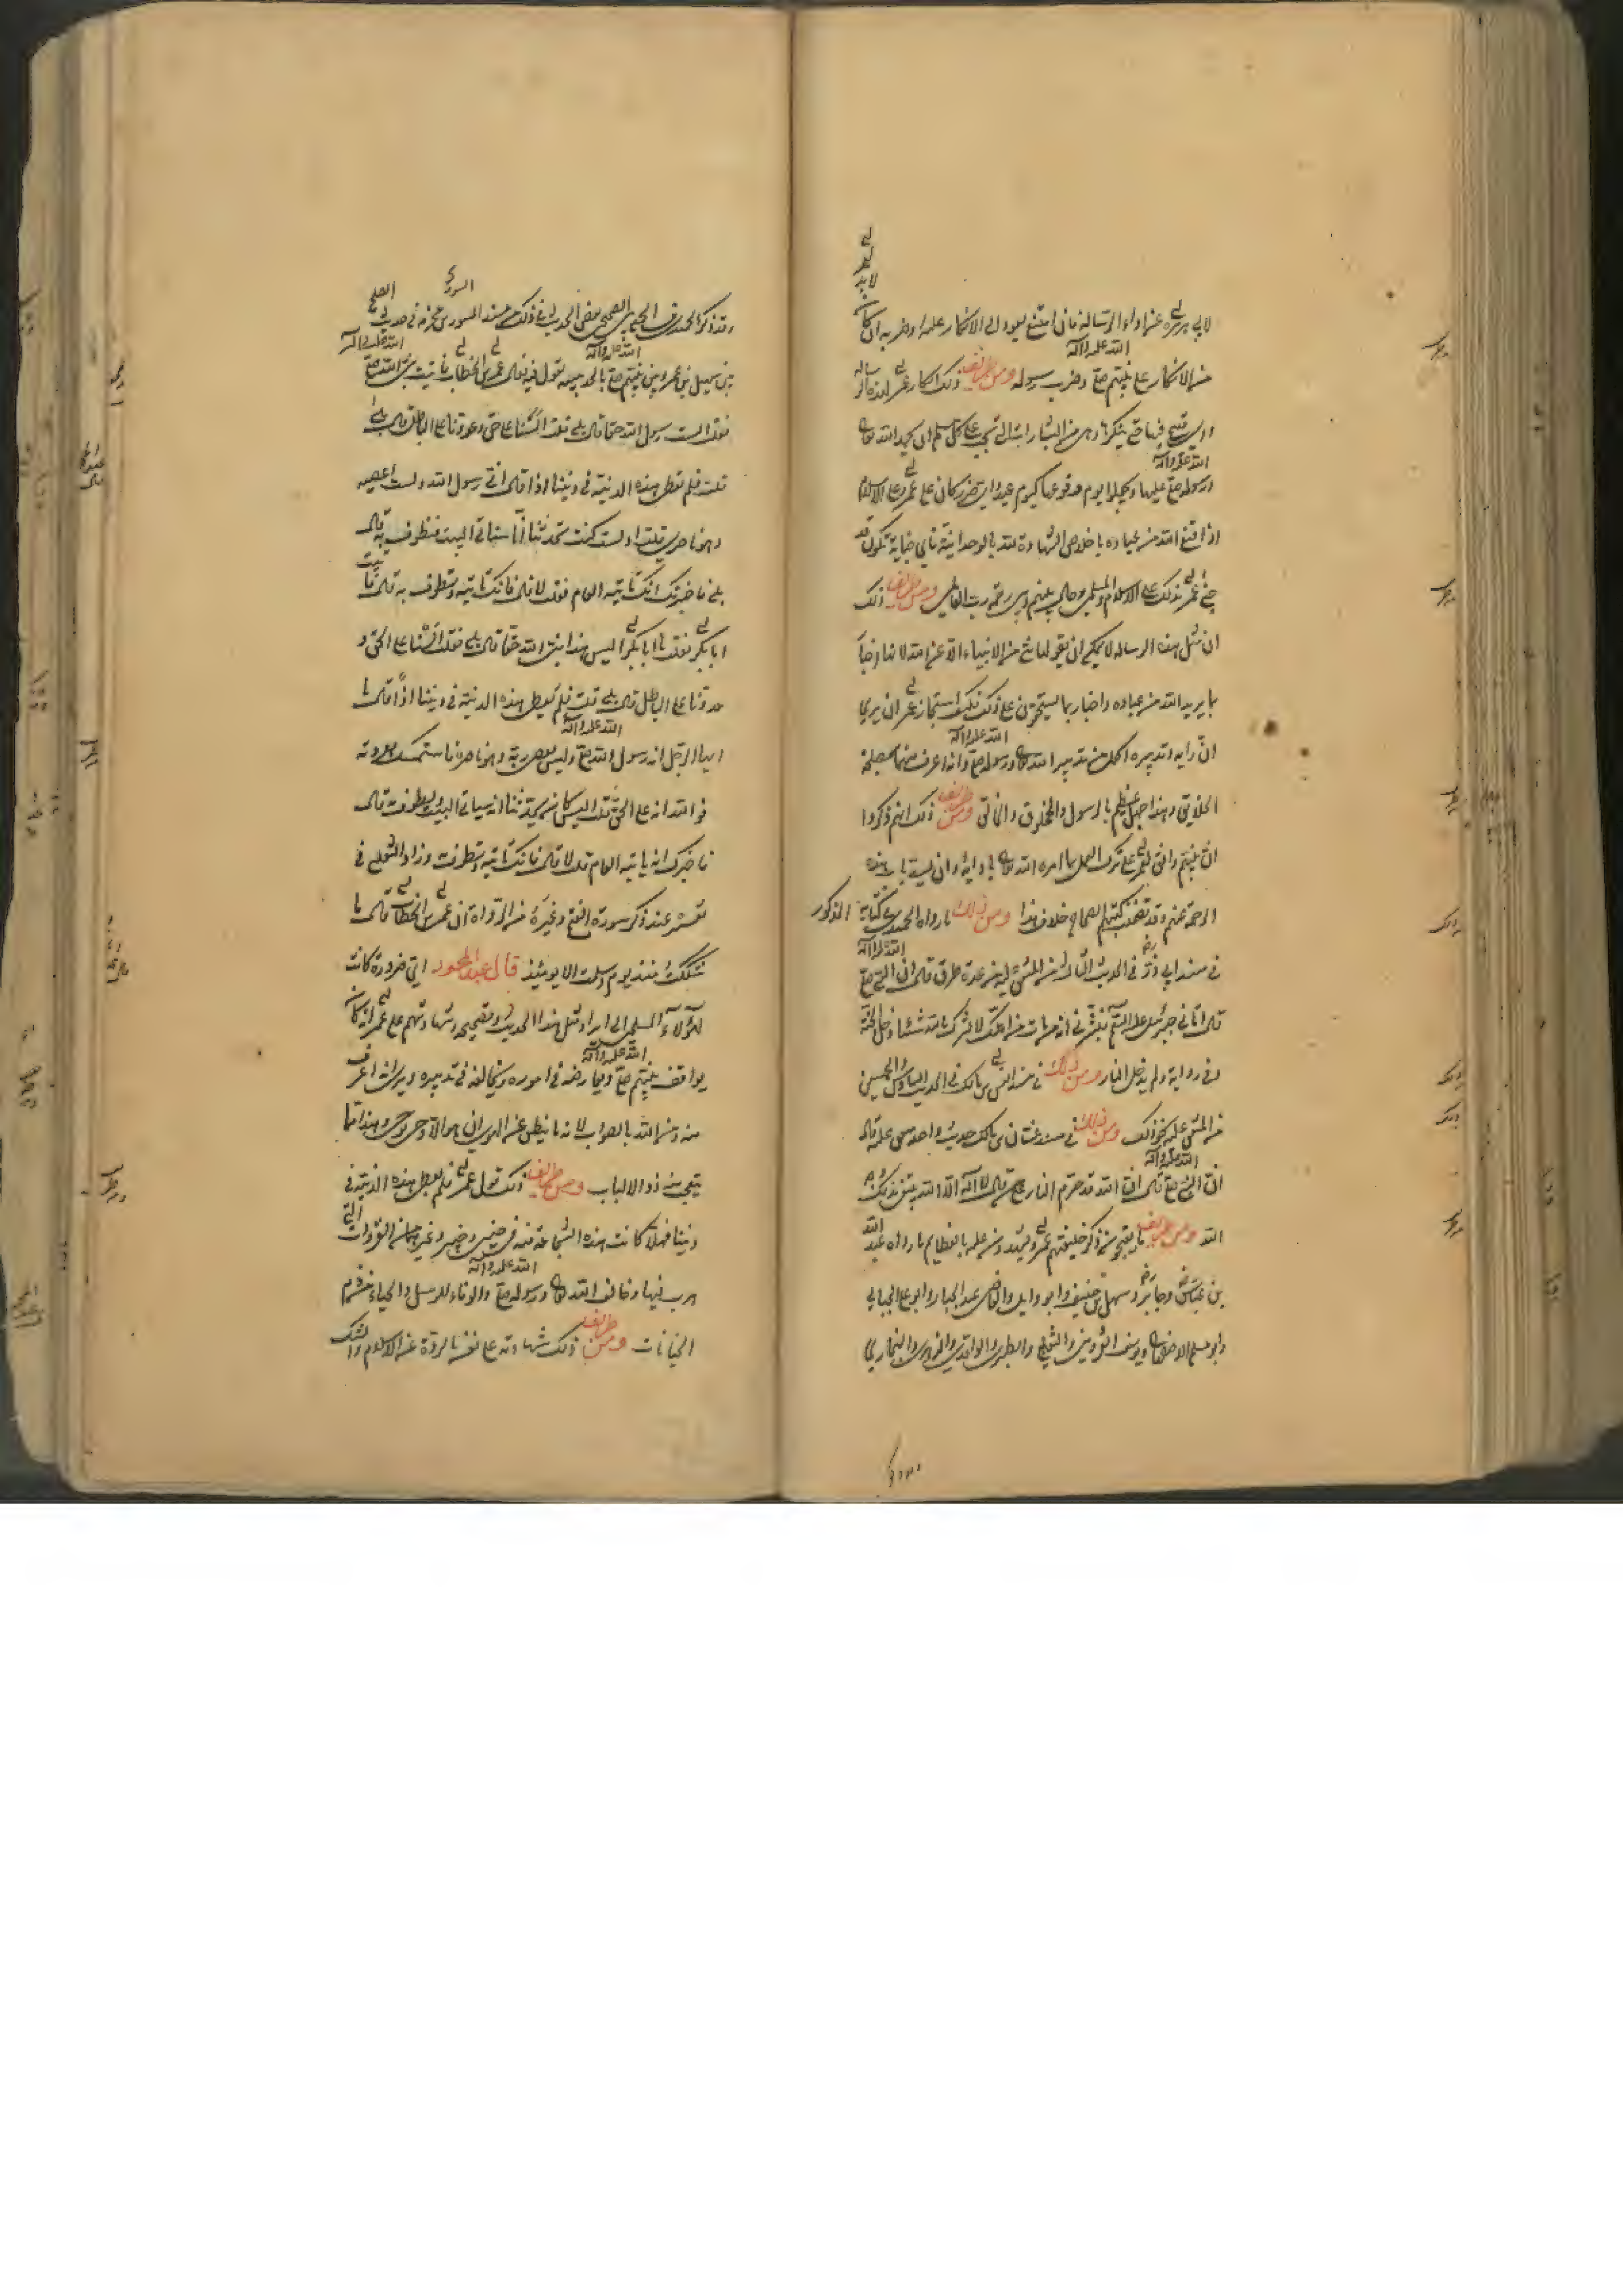 لابي هريرة عن اداء الرسالة فان امتنع يعود الى الانكار عليه او ضربه ان كان
من الانكار على نبيهم صلع وضرب رسوله ومن طرايف ذلك انكار عمر لهذه الرسالة
واي قبح فيها حتى ينكرها وهي من البشارات التي تجب على كل مسلم ان يحمد الله تعالى
ورسوله صلع عليها ويجعلوا يوم وقوعها كيوم عيد واي ضرر كان على عمر وعلى الاسلام
اذا قنع الله من عباده باخلاص الشهادة لله بالوحدانية فاي جناية تكون قد
جنى عمر بذلك على الاسلام والمسلمين وحال بينهم وبين رحمة رب العالمين ومن طرايف ذلك
ان مثل هذه الرسالة لا يمكن ان يقولها شيء من الانبياء الا عن الله لانها اخبار
بما يريد الله من عباده واخبار بما يستحقون على ذلك فكيف استجاز عمر ان يرى
ان رايه وتدبيره اكمل من تدبير الله تعالى ورسوله صلع وانه اعرف منهما بمصلحة
الخلايق وهذا جهل عظيم بالرسول والمخلوق والخالق ومن طرايف ذلك انهم ذكروا
ان نبيهم وافق لعمر على ترك العمل بما امره الله تعالى بادايه وان يسد باب هذه
الرحمة عنهم وقد تضمنت كتبهم الصحاح خلاف هذا ومن ذلك ما رواه الحميدي في كتابه المذكور
في مسند ابي ذر في الحديث الثالث من المتفق عليه من عدة طرق قال ان النبي صلع
قال اتاني جبرئيل عليه السلم فبشرني انه من مات من امتك لا يشرك بالله شيئا دخل الجنة
وفي رواية ولم يدخل النار ومن ذلك في مسند انس بن مالك في الحديث السادس والخمسين
من المتفق عليه نحو ذلك ومن ذلك في مسند عتبان بن مالك حديث واحد متفق عليه قال
ان النبي صلع قال ان الله قد حرم النار على من قال لا اله الا الله يبتغي بذلك وجه
الله ومن طريف ما يقبحون ذكر خليفتهم عمر ويشهدون عليه بالعظايم ما رواه عبد الله
بن عباس وجابر وسهل بن حنيف وابو وايل والقاضي عبد الجبار وابو علي الجبائي
وابو مسلم الاصفهاني ويوسف القزويني والثعلبي والطبري والواقدي والزهري والبخاري
وقد ذكر الحميدي في الجمع بين الصحيحين بعض الحديث في ذلك من مسند المسور بن مخرمة في حديث الصلح
بين سهيل بن عمرو وبين نبيهم صلع بالحديبية يقول فيه فقال عمر بن الخطاب فاتيت نبي الله صلع
فقلت الست رسول الله حقا قال بلى قلت السنا على حق وعدونا على الباطل قال بلى
قلت فلم نعطي هذه الدنية في ديننا اذا قال اني رسول الله ولست اعصيه
وهو ناصري قلت او لست كنت تحدثنا انا سناتي البيت فنطوف به قال
بلى فاخبرتك انك تاتيه العام فقلت لا قال فانك تاتيه وتطوف به قال فاتيت
ابا بكر فقلت يا ابا بكر اليس هذا نبي الله حقا قال بلى فقلت السنا على الحق و
عدونا على الباطل قال بلى قلت فلم نعطي هذه الدنية في ديننا اذا قال يا
ايها الرجل انه رسول الله صلع وليس يعصي ربه وهو ناصره فاستمسك بعروته
فو الله انه على الحق قلت اليس كان يحدثنا انه سياتي البيت ويطوف قال
فاخبرك انه ياتيه العام قلت لا قال فانك تاتيه وتطوف وزاد الثعلبي في
تفسيره عند ذكر سورة الفتح وغيره من الرواة ان عمر بن الخطاب قال ما
شككت منذ يوم اسلمت الا يومئذ قال عبد المحمود اي ضرورة كانت
لهؤلاء المسلمين الى ايراد مثل هذا الحديث وتصحيحه وشهادتهم على عمر انه كان
يواقف نبيهم صلع ويعارضه في اموره ويخالفه في تدبيره ويرى انه اعرف
منه ومن الله بالصواب لانه ما ينطق عن الهوى ان هو الا وحي يوحى وهذا مما
يتعجب منه ذو الالباب ومن طرايف ذلك قول عمر فلم نعطي هذه الدنية في
ديننا فهلا كانت هذه الشجاعة منه في حنين وخيبر وغيرهما من الغزوات التي
هرب فيها وخالف الله تعالى ورسوله صلع والوفاء للرسل والحياء من قدم
الخيانات ومن طرايف ذلك شهادته على نفسه بالردة عن الاسلام والشك